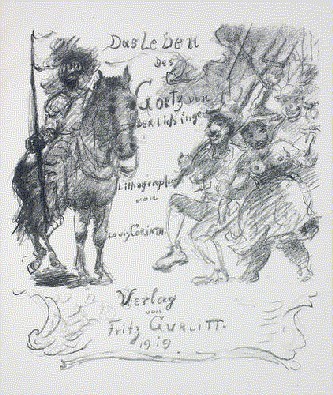 Das Leben
des
Goetz von
Berlichingen
Lithographien
von
Lovis Corinth
Verlag
von
Fritz GURLITT.
1919